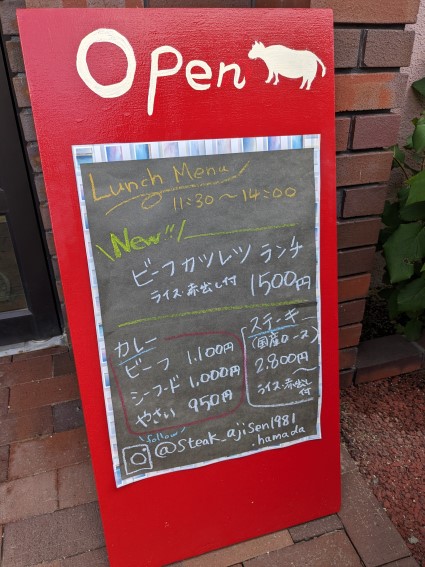 Open
Lunch Menu
11:30〜14:00
New!!
ビーフカツレツ ランチ
ライス・赤出し付 1500円
カレー
ビーフ 1,100円
シーフード 1,000円
やさい 950円
ステーキ
(国産ロース)
2,800円
〜
ライス・赤出し
付
follow
@steak_ajisen1981
.hamada